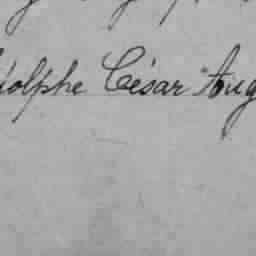 dolphe César Aug